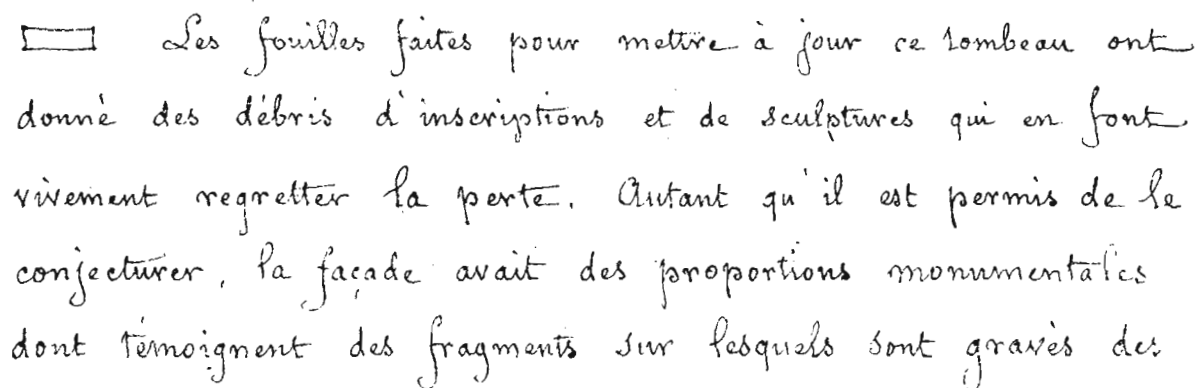 Les fouilles faites pour mettre à jour ce tombeau ont
donné des débris d'inscriptions et de sculptures qui en font
vivement regretter la perte. Autant qu'il est permis de le
conjecturer, la façade avait des proportions monumentales
dont témoignent des fragments sur lesquels sont gravés des